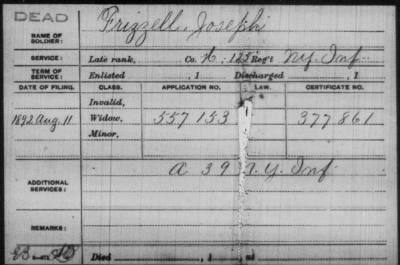 DEAD
NAME OF SOLDIER: Frizzell, Joseph
SERVICE: Late rank, Co. K, 125 Reg't N.Y. Inf
TERM OF SERVICE: Enlisted , 1 Discharged , 1
DATE OF FILING. CLASS. APPLICATION NO. LAW. CERTIFICATE NO.
Invalid,
1892 Aug. 11 Widow, 557153 377861
Minor,
ADDITIONAL SERVICES: A 39 N.Y. Inf
REMARKS:
Died , 1 , at